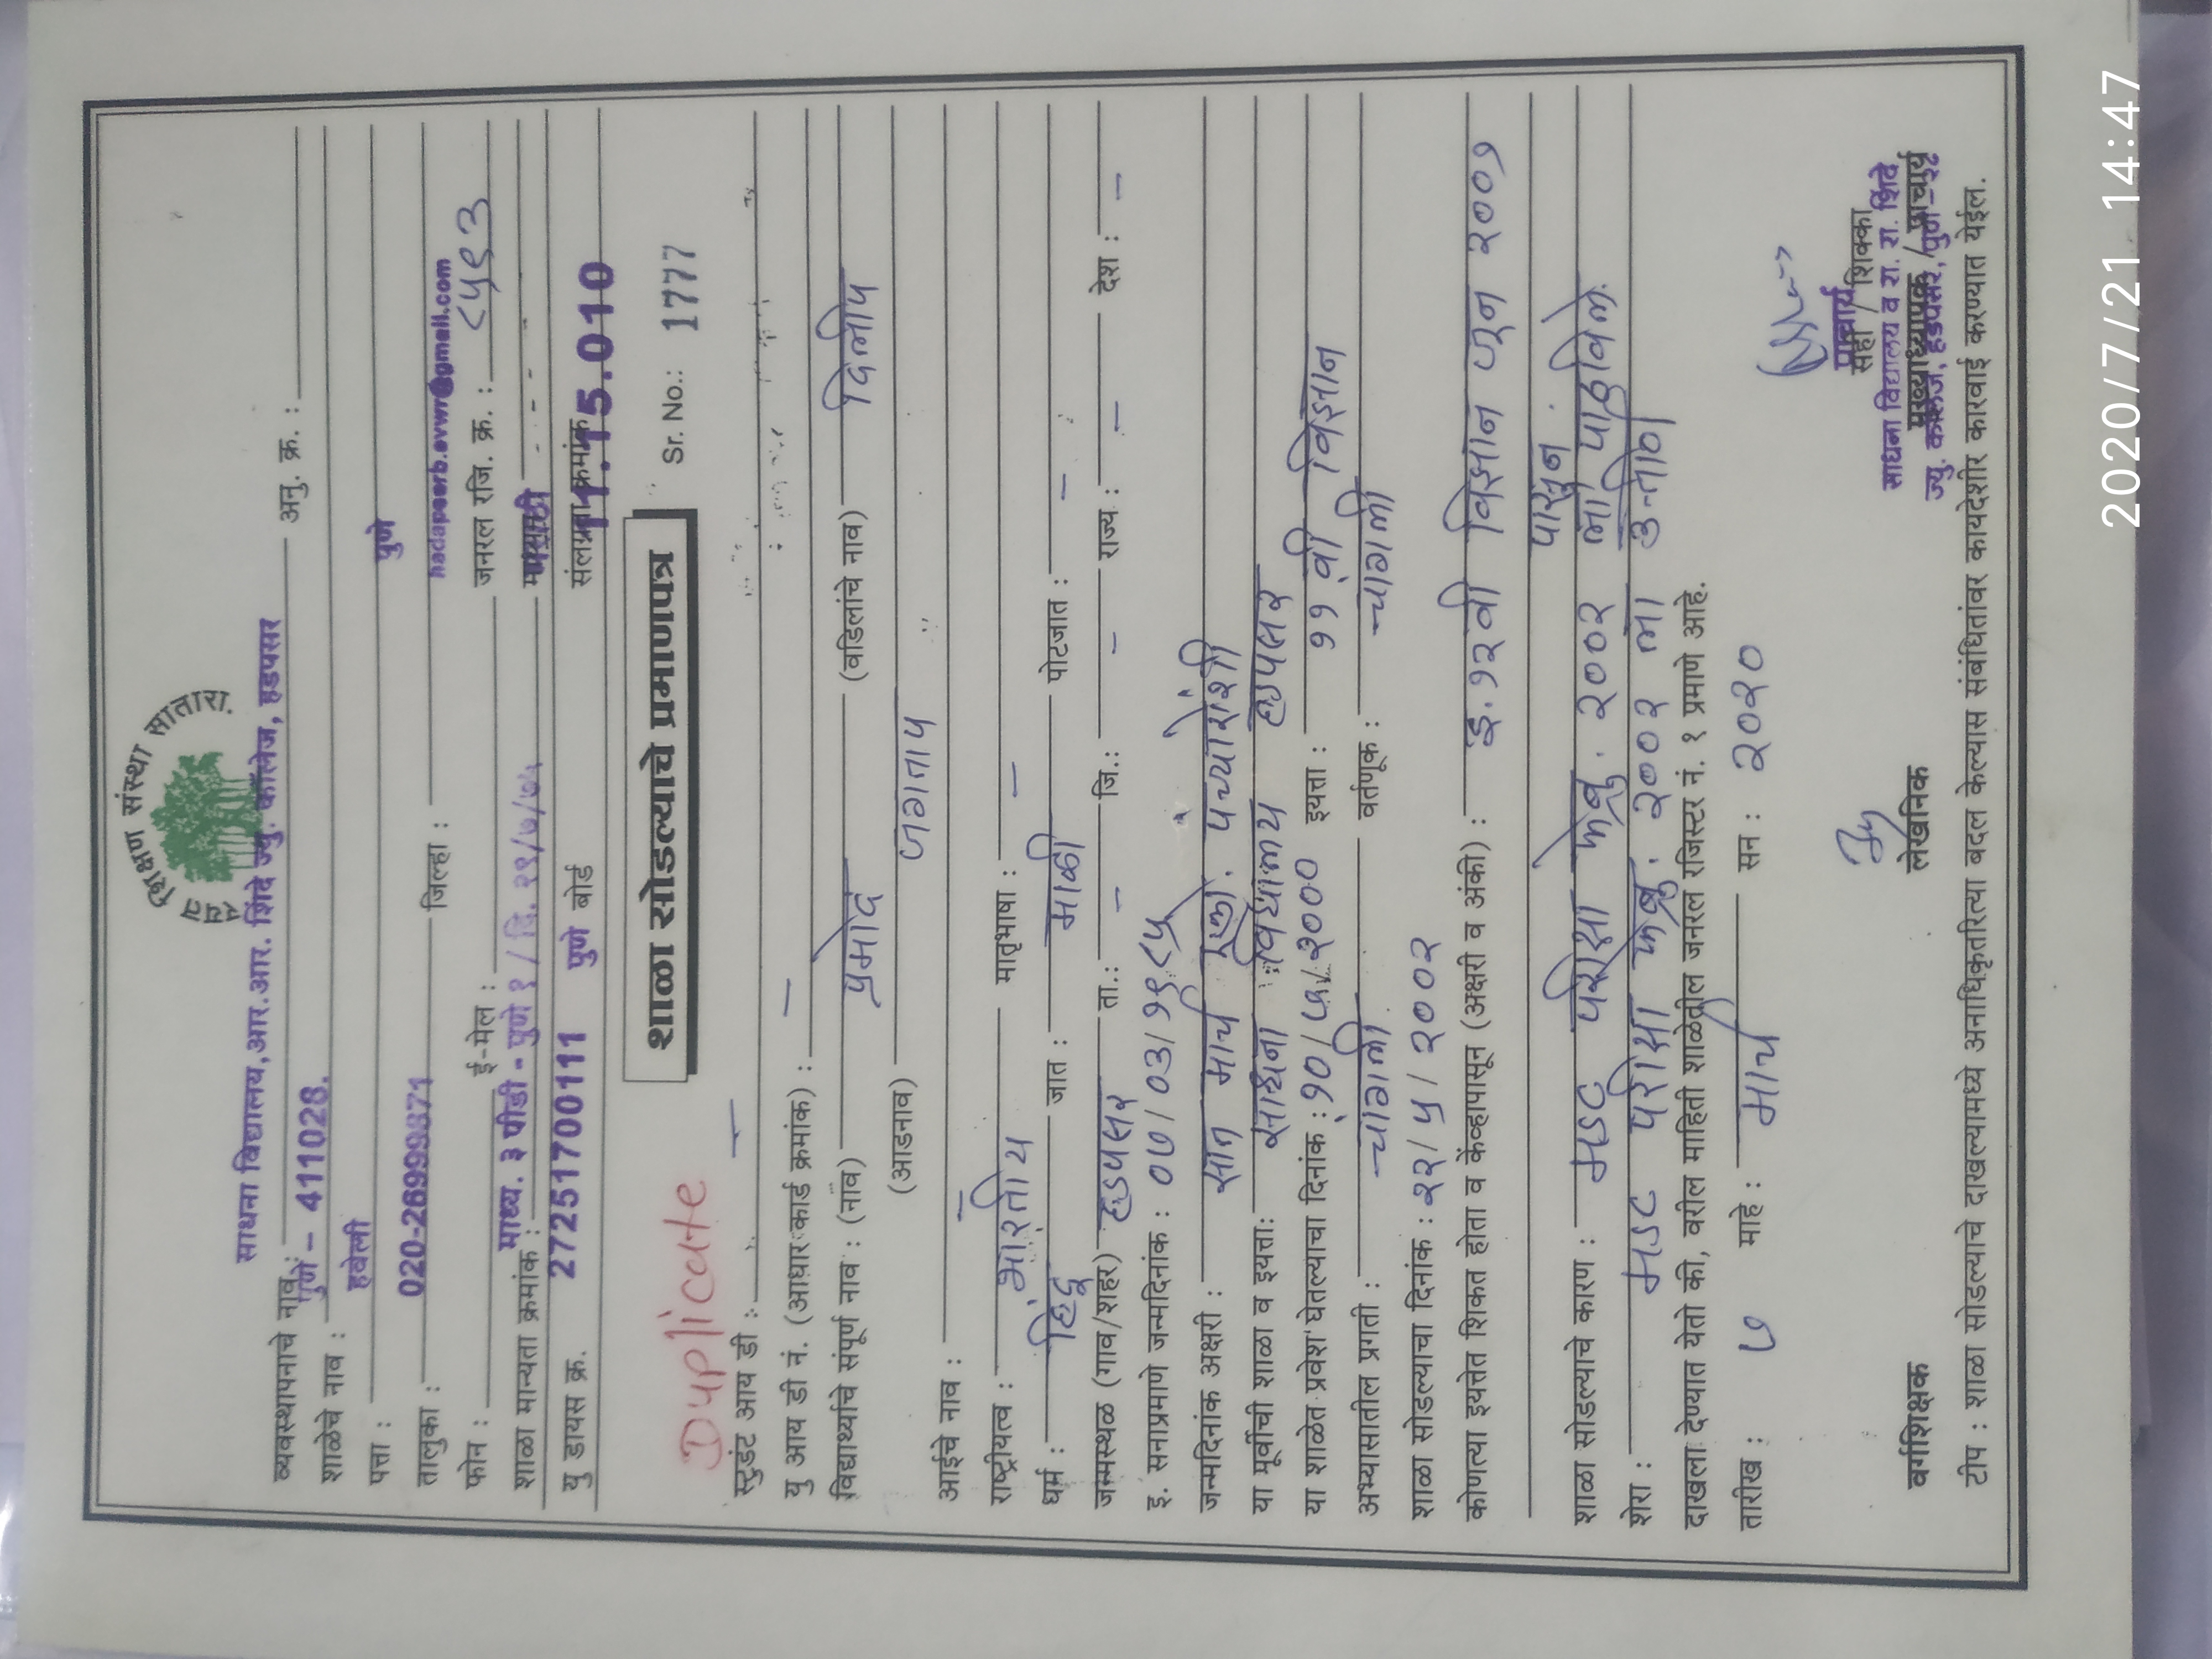 रयत शिक्षण संस्था सातारा.
साधना विद्यालय,आर.आर. शिंदे ज्यु. कॉलेज, हडपसर
व्यवस्थापनाचे नाव : अनु. क्र. :
पुणे - 411028.
शाळेचे नाव :
हवेली पुणे
पत्ता :
020-26999871 hadapserb.svwr@gmail.com
तालुका : जिल्हा :
फोन : ई-मेल : जनरल रजि. क्र. : ८५९३
शाळा मान्यता क्रमांक : माध्य. ३ पीडी - पुणे १ / दि. २९/७/७५ मराठी
यु डायस क्र. 27251700111 पुणे बोर्ड संलग्नता क्रमांक 11.15.010
शाळा सोडल्याचे प्रमाणपत्र Sr. No.: 1777
Duplicate
स्टुडंट आय डी : —
यु आय डी नं. (आधार कार्ड क्रमांक) : —
विद्यार्थ्याचे संपूर्ण नाव : (नाव) प्रमोद (वडिलांचे नाव) दिलीप
(आडनाव) जगताप
आईचे नाव : —
राष्ट्रीयत्व : भारतीय मातृभाषा : —
धर्म : हिंदू जात : माळी पोटजात : —
जन्मस्थळ (गाव/शहर) हडपसर ता.: — जि.: — राज्य : — देश : —
इ. सनाप्रमाणे जन्मदिनांक : ०७/०३/१९८५
जन्मदिनांक अक्षरी : सात मार्च एको. पंच्याऐंशी
या पूर्वीची शाळा व इयत्ता: साधना विद्यालय हडपसर
या शाळेत प्रवेश घेतल्याचा दिनांक : १०/७/२००० इयत्ता : ११ वी विज्ञान
अभ्यासातील प्रगती : चांगली वर्तणूक : चांगली
शाळा सोडल्याचा दिनांक : २२/५/२००२
कोणत्या इयत्तेत शिकत होता व केंव्हापासून (अक्षरी व अंकी) : इ. १२वी विज्ञान जून २००१
पासून
शाळा सोडल्याचे कारण : मंडळ परीक्षा फेब्रु. २००२ ला पाठविले.
शेरा : मंडळ परीक्षा फेब्रु. २००२ ला उत्तीर्ण
दाखला देण्यात येतो की, वरील माहिती शाळेतील जनरल रजिस्टर नं. १ प्रमाणे आहे.
तारीख : ७ माहे : मार्च सन : २०२०
प्राचार्य
सही / शिक्का
साधना विद्यालय व रा. रा. शिंदे
वर्गशिक्षक लेखनिक मुख्याध्यापक / प्राचार्य
ज्यु. कॉलेज, हडपसर, पुणे-२८
टीप : शाळा सोडल्याचे दाखल्यामध्ये अनाधिकृतरित्या बदल केल्यास संबंधितांवर कायदेशीर कारवाई करण्यात येईल.
2020/7/21 14:47